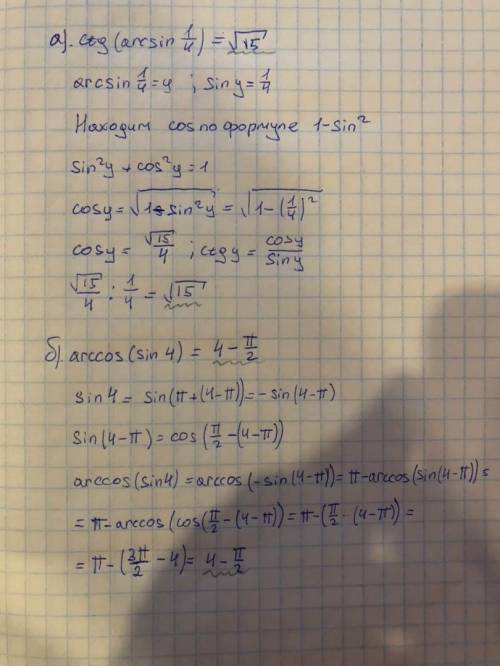 а). ctg(arcsin 1/4) = √15
arcsin 1/4 = y ; sin y = 1/4
Находим cos по формуле 1-sin²
sin²y + cos²y = 1
cosy = √(1-sin²y) = √(1-(1/4)²)
cosy = √15/4 ; ctg y = cosy/siny
√15/4 : 1/4 = √15
б). arccos(sin 4) = 4 - π/2
sin4 = sin(π+(4-π)) = -sin(4-π)
sin(4-π) = cos(π/2 - (4-π))
arccos(sin4) = arccos(-sin(4-π)) = π-arccos(sin(4-π)) =
= π-arccos(cos(π/2 - (4-π)) = π-(π/2 - (4-π)) =
= π-(3π/2 - 4) = 4 - π/2